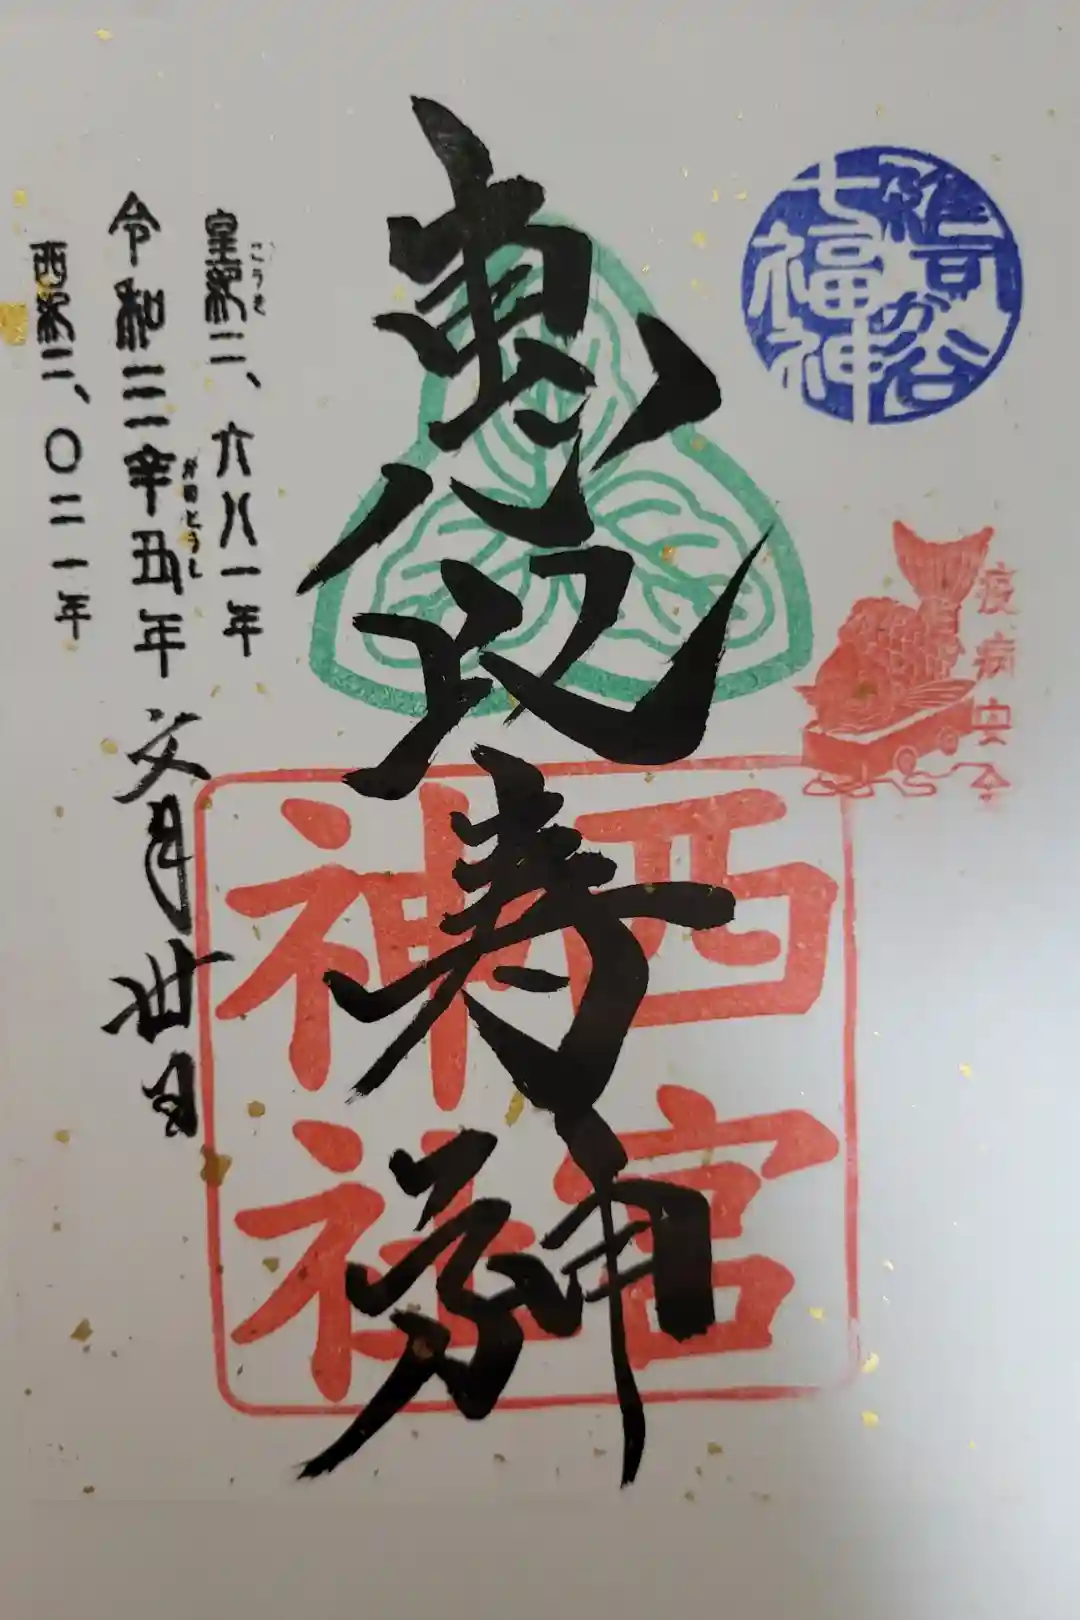 雑司が谷
七福神
疫病安全
恵比寿神
西宮
神社
皇紀二、六八一年
こうき
令和三辛丑年 文月卅日
かのとうし
西紀二、〇二一年